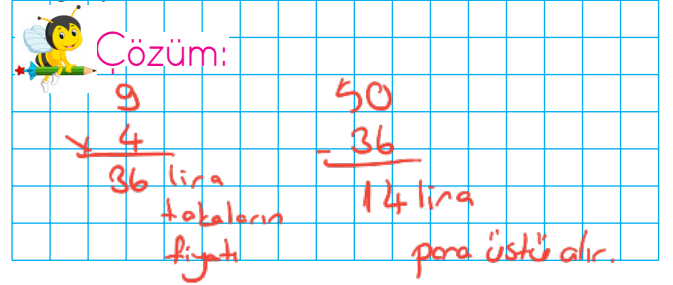 Çözüm:
9
x 4
36 lira
tokaların
fiyatı
50
- 36
14 lira
para üstü alır.